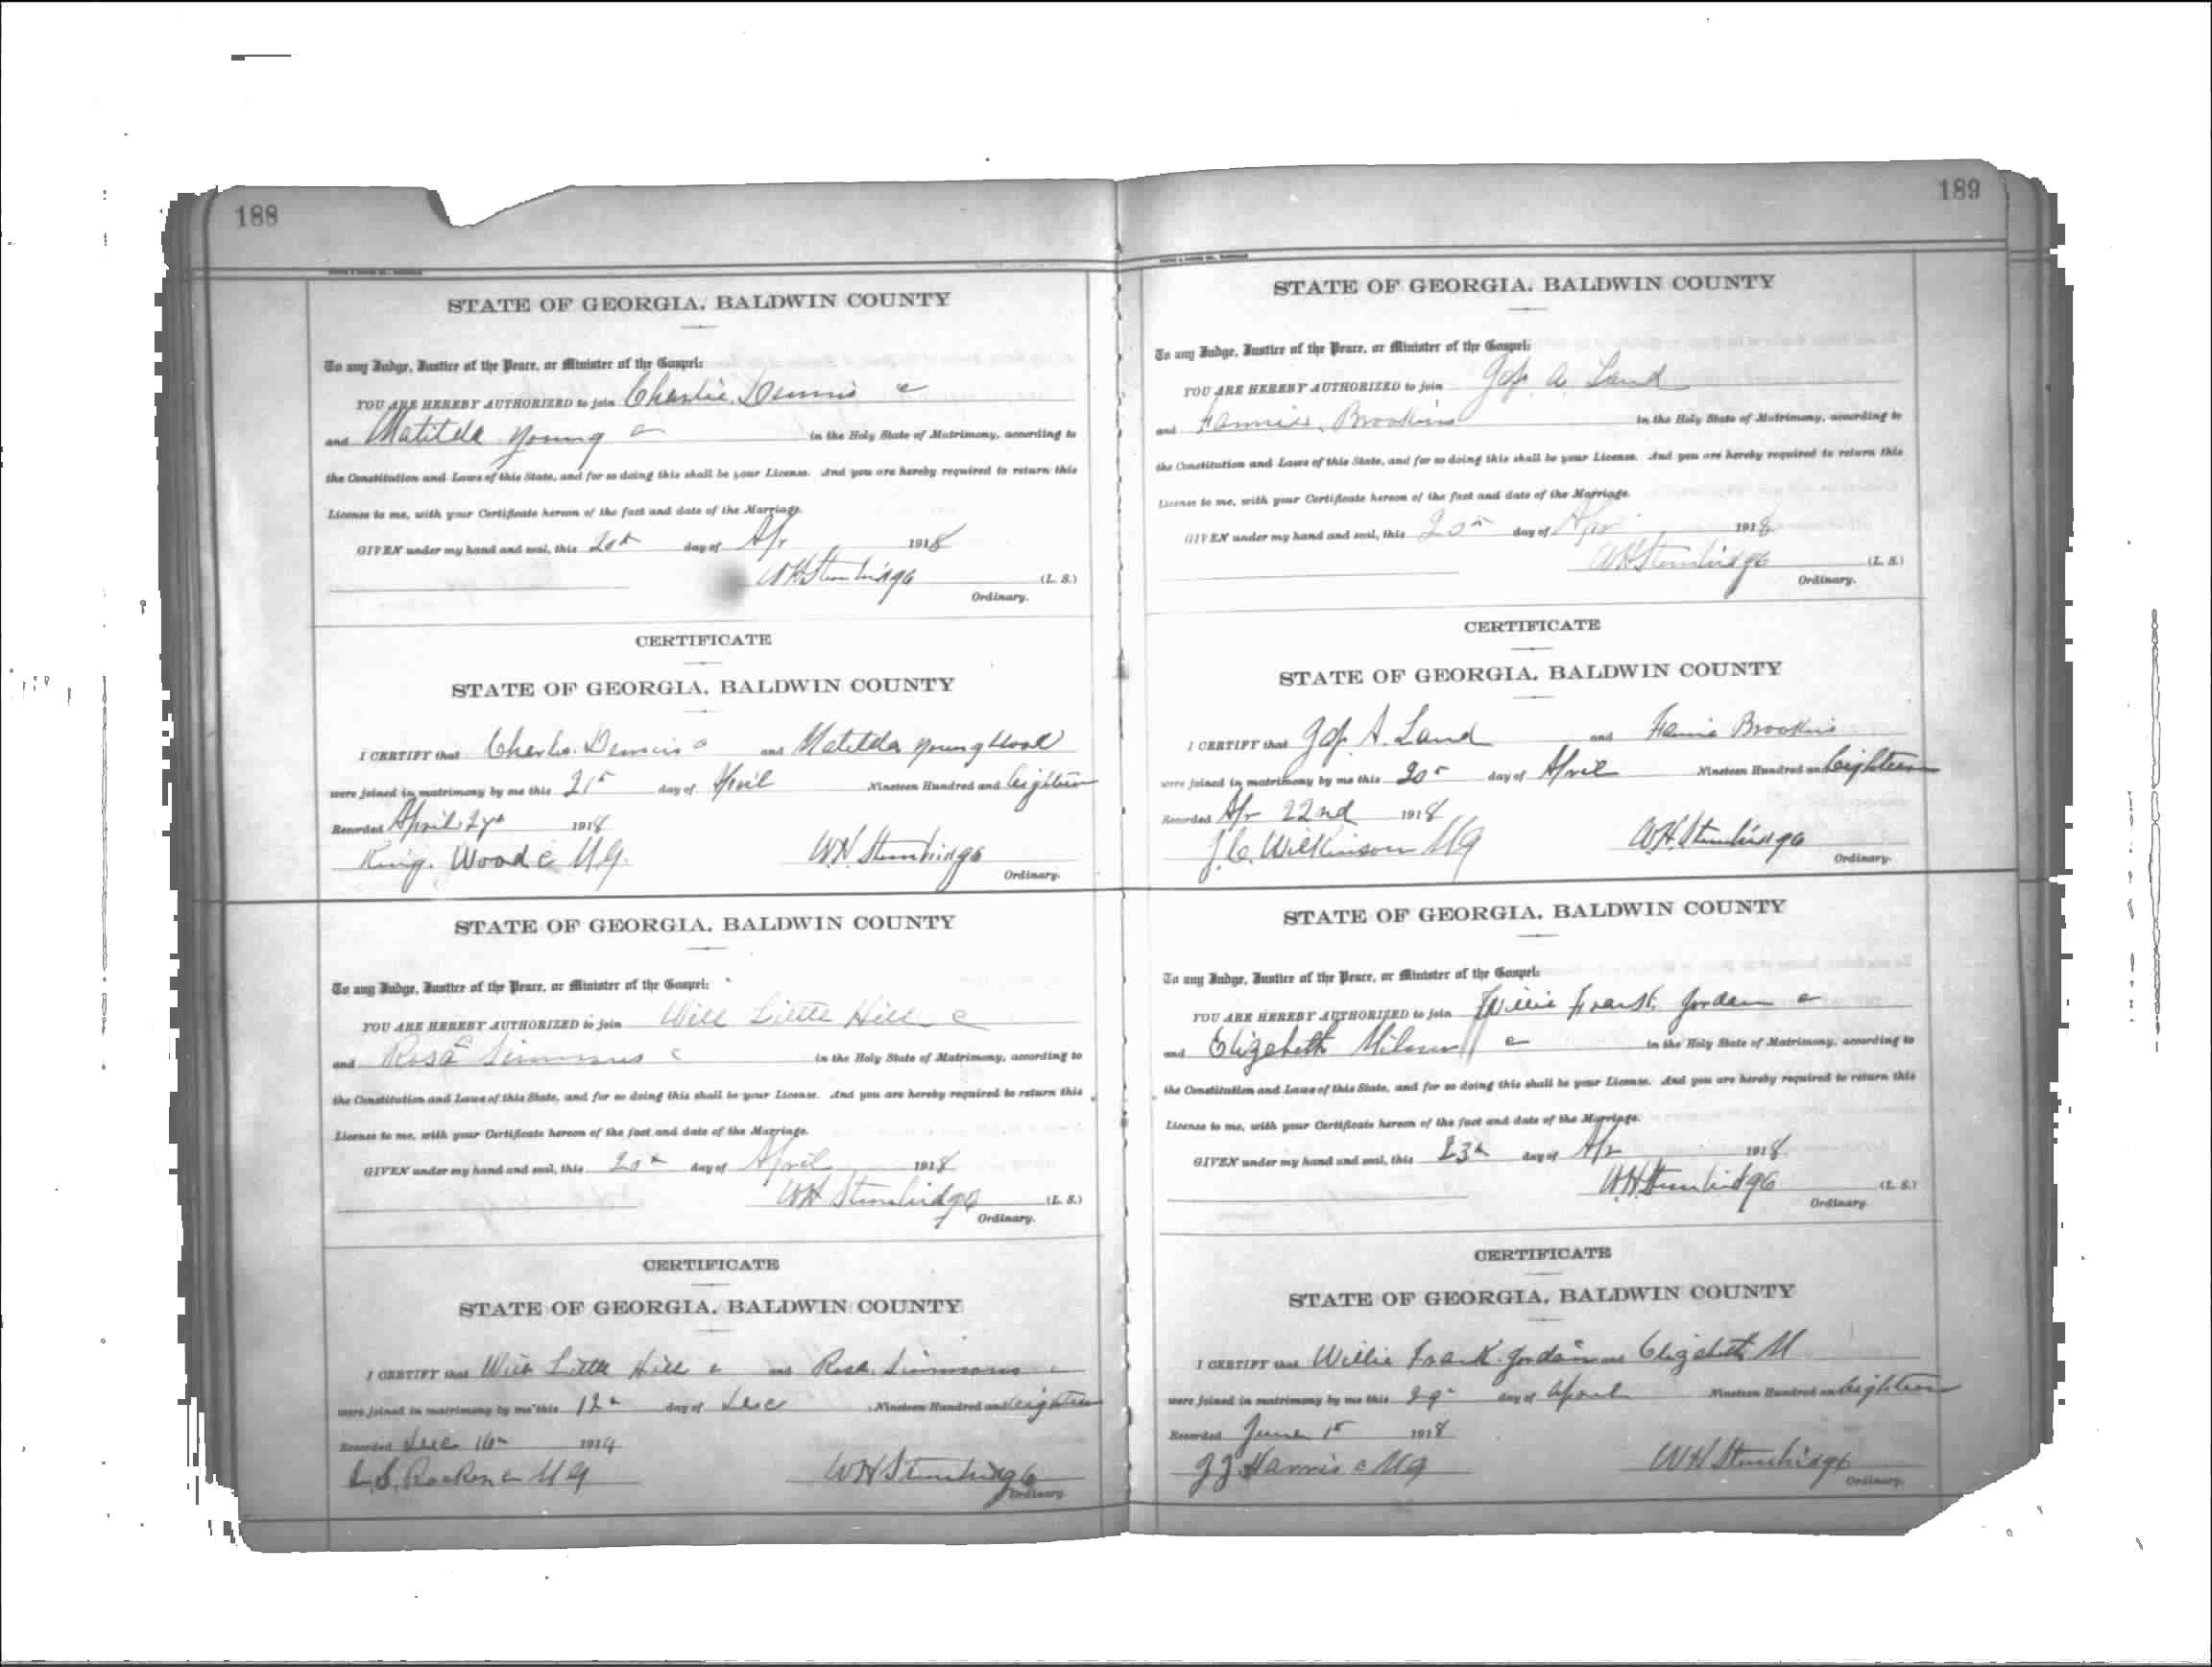 188
STATE OF GEORGIA, BALDWIN COUNTY
To any Judge, Justice of the Peace, or Minister of the Gospel:
YOU ARE HEREBY AUTHORIZED to join Charlie Dennis c
and Matilda Young c in the Holy State of Matrimony, according to
the Constitution and Laws of this State, and for so doing this shall be your License. And you are hereby required to return this
License to me, with your Certificate hereon of the fact and date of the Marriage.
GIVEN under my hand and seal, this 20th day of Apr 1918
WH Stembridge (L. S.)
Ordinary.
CERTIFICATE
STATE OF GEORGIA, BALDWIN COUNTY
I CERTIFY that Charlie Dennis c and Matilda Youngblood
were joined in matrimony by me this 21st day of April Nineteen Hundred and Eighteen
Recorded April 1918
King Wood c M.G. W.H. Stembridge
Ordinary.
STATE OF GEORGIA, BALDWIN COUNTY
To any Judge, Justice of the Peace, or Minister of the Gospel:
YOU ARE HEREBY AUTHORIZED to join Will Little Hill c
and Rosa Simmons c in the Holy State of Matrimony, according to
the Constitution and Laws of this State, and for so doing this shall be your License. And you are hereby required to return this
License to me, with your Certificate hereon of the fact and date of the Marriage.
GIVEN under my hand and seal, this 20th day of April 1918
WH Stembridge (L. S.)
Ordinary.
CERTIFICATE
STATE OF GEORGIA, BALDWIN COUNTY
I CERTIFY that Will Little Hill c and Rosa Simmons c
were joined in matrimony by me this 12th day of Dec Nineteen Hundred and Eighteen
Recorded Dec 16th 191
c M G WH Stembridge
Ordinary.
189
STATE OF GEORGIA, BALDWIN COUNTY
To any Judge, Justice of the Peace, or Minister of the Gospel:
YOU ARE HEREBY AUTHORIZED to join Jos. A. Land
and Fannie Brookins in the Holy State of Matrimony, according to
the Constitution and Laws of this State, and for so doing this shall be your License. And you are hereby required to return this
License to me, with your Certificate hereon of the fact and date of the Marriage.
GIVEN under my hand and seal, this 20th day of Apr 1918
WH Stembridge (L. S.)
Ordinary.
CERTIFICATE
STATE OF GEORGIA, BALDWIN COUNTY
I CERTIFY that Jos. A. Land and Fannie Brookins
were joined in matrimony by me this 20th day of April Nineteen Hundred and Eighteen
Recorded Apr 22nd 1918
J.C. Wilkinson MG W.H. Stembridge
Ordinary.
STATE OF GEORGIA, BALDWIN COUNTY
To any Judge, Justice of the Peace, or Minister of the Gospel:
YOU ARE HEREBY AUTHORIZED to join Willie Frank Jordan c
and Elizabeth c in the Holy State of Matrimony, according to
the Constitution and Laws of this State, and for so doing this shall be your License. And you are hereby required to return this
License to me, with your Certificate hereon of the fact and date of the Marriage.
GIVEN under my hand and seal, this 23d day of Apr 1918
W.H Stembridge (L. S.)
Ordinary.
CERTIFICATE
STATE OF GEORGIA, BALDWIN COUNTY
I CERTIFY that Willie Frank Jordan and Elizabeth M
were joined in matrimony by me this day of April Nineteen Hundred and Eighteen
Recorded June 1st 1918
JJ Harris c MG WH Stembridge
Ordinary.